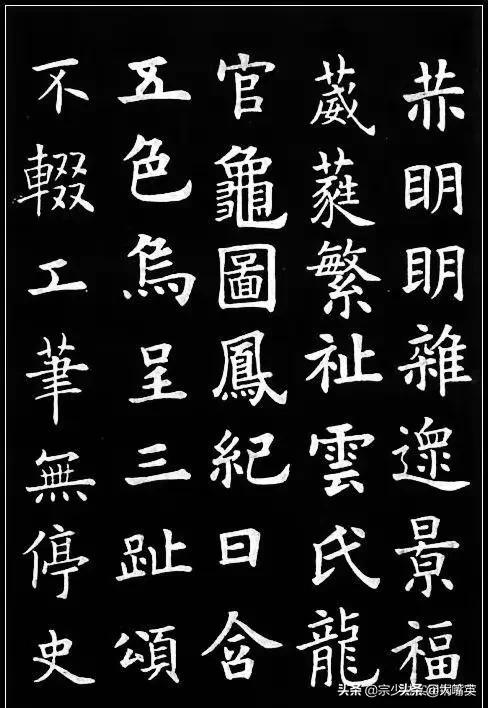 赫明明雜遝景福
葳蕤繁祉雲氏龍
官龜圖鳳紀日含
五色烏呈三趾頌
不輟工筆無停史
头条 @宗少
头条 @大嘴英